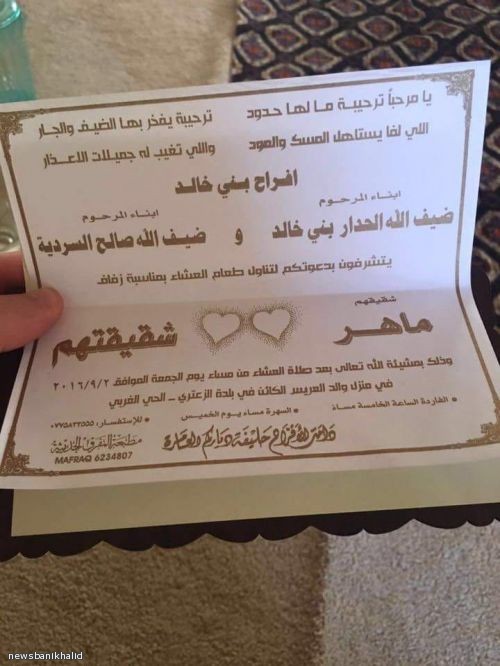 يا مرحباً ترحيبة ما لها حدود ترحيبة يفخر بها الضيف والجار
اللي لفا يستاهل المسك والعود واللي تغيب له جميلات الاعذار
افراح بني خالد
ابناء المرحوم ابناء المرحوم
ضيف الله الحدار بني خالد و ضيف الله صالح السردية
يتشرفون بدعوتكم لتناول طعام العشاء بمناسبة زفاف
شقيقهم
ماهر شقيقتهم
وذلك بمشيئة الله تعالى بعد صلاة العشاء من مساء يوم الجمعة الموافق ٢٠١٦/٩/٢
في منزل والد العريس الكائن في بلدة الزعتري - الحي الغربي
* الفاردة الساعة الخامسة مساءً * السهرة مساء يوم الخميس * للإستفسار: ٠٧٧٥٨٣٣٥٥٥
دامت الأفراح حليفة دياركم العامرة
مطبعة المفرق الحديثة
MAFRAQ 6234807
newsbanikhalid